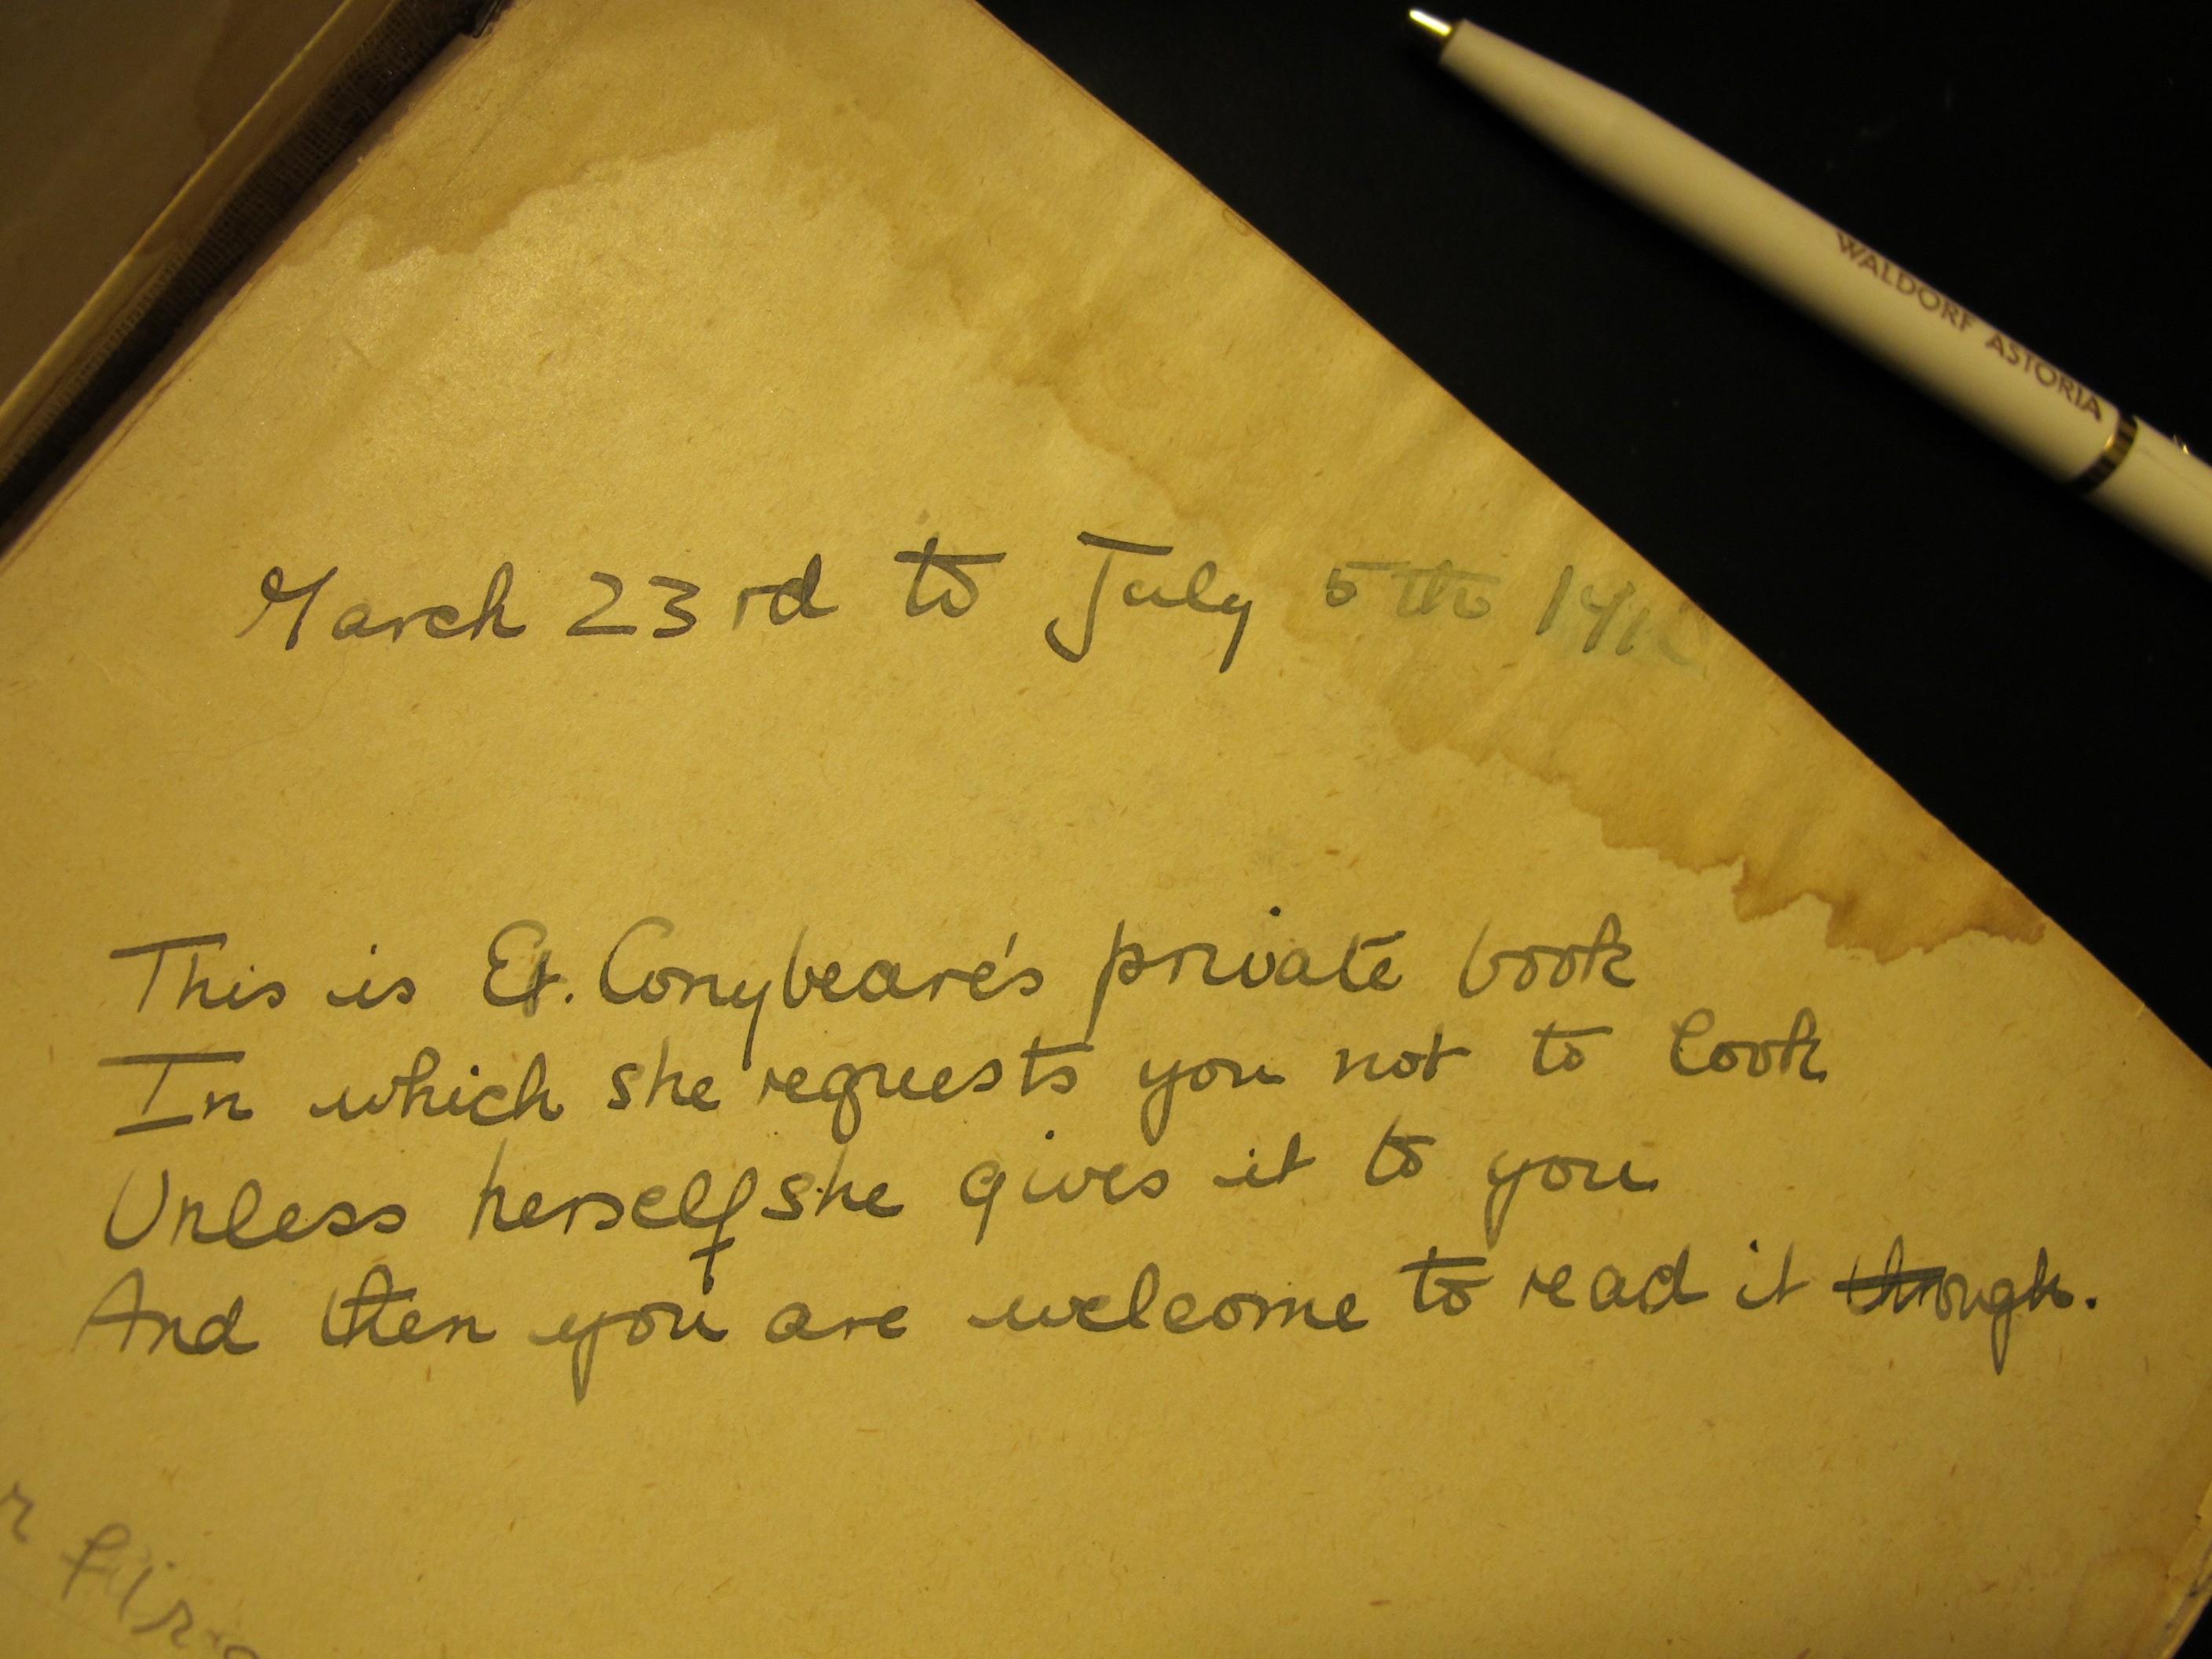 WALDORF ASTORIA
March 23rd to July 5th
This is Et. Conybeare's private book
In which she requests you not to look
Unless herself she gives it to you
And then you are welcome to read it though.